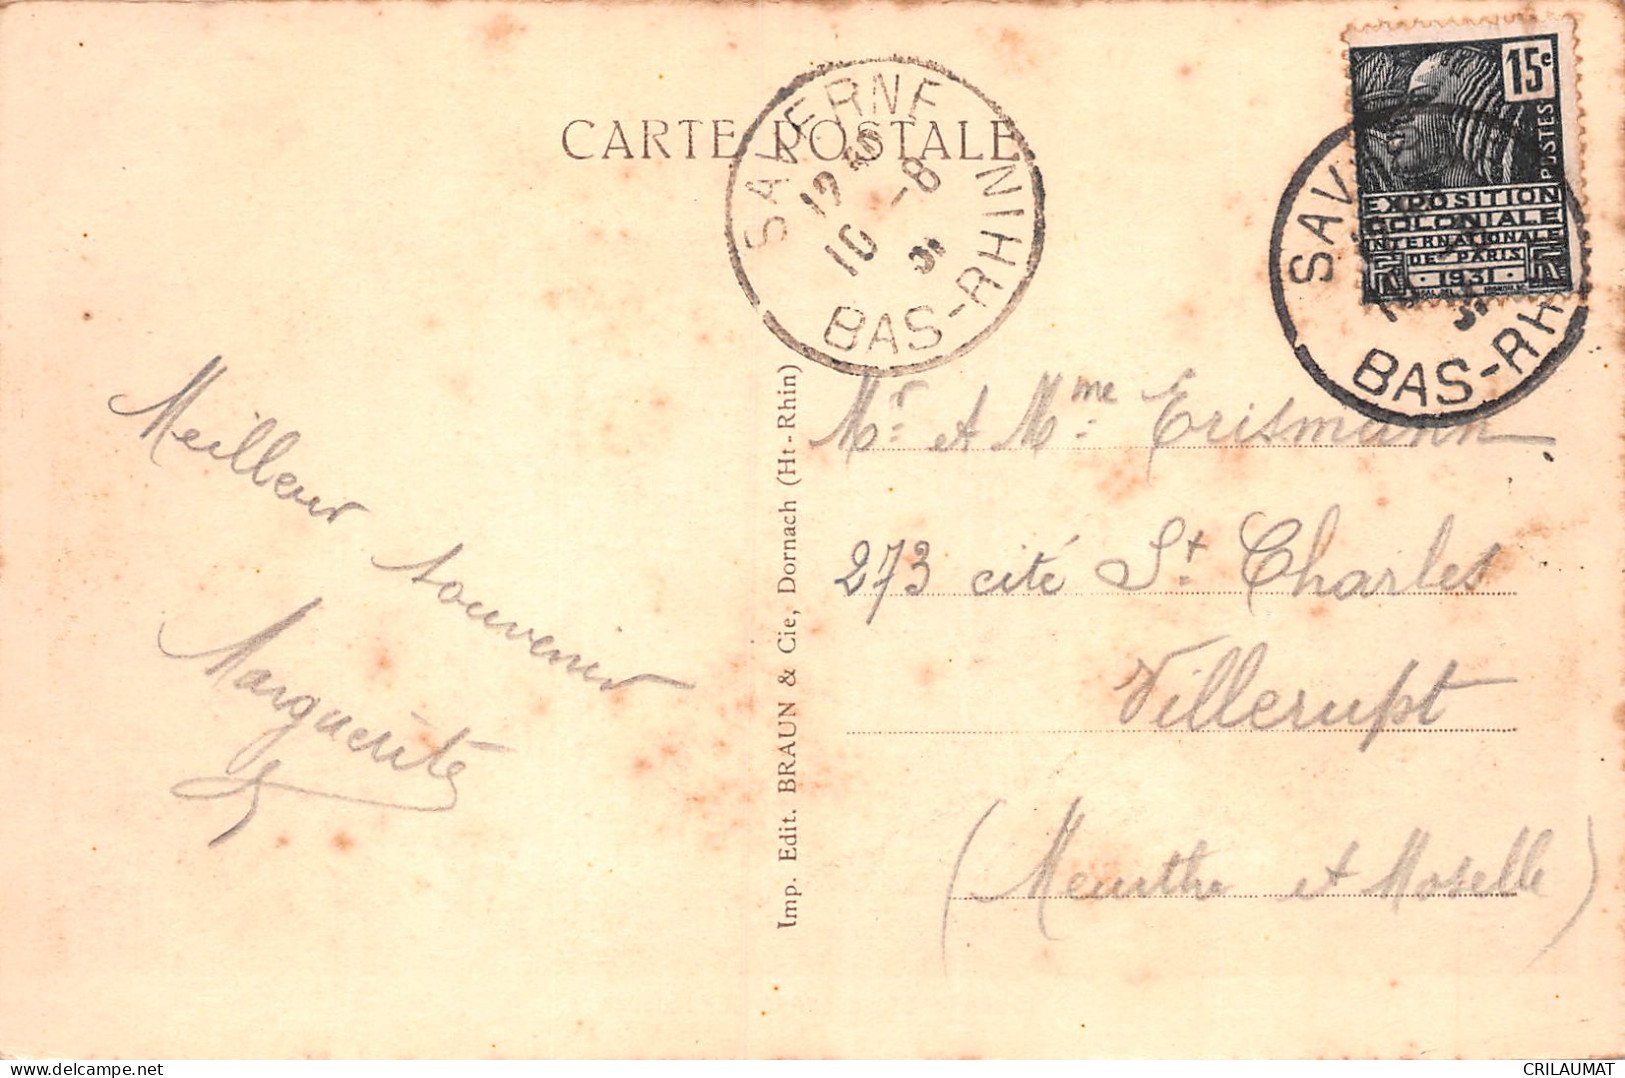 CARTE POSTALE
SAVERNE
BAS-RHIN
10 -8
15c
POSTES
EXPOSITION
COLONIALE
INTERNATIONALE
DE PARIS
1931
SAV
BAS-RH
Meilleur souvenir
Marguerite
Imp. Edit. BRAUN & Cie, Dornach (Ht-Rhin)
Mr. et Mme. Erismann
273 cité St. Charles
Villerupt
(Meurthe et Moselle)
CRILAUMAT